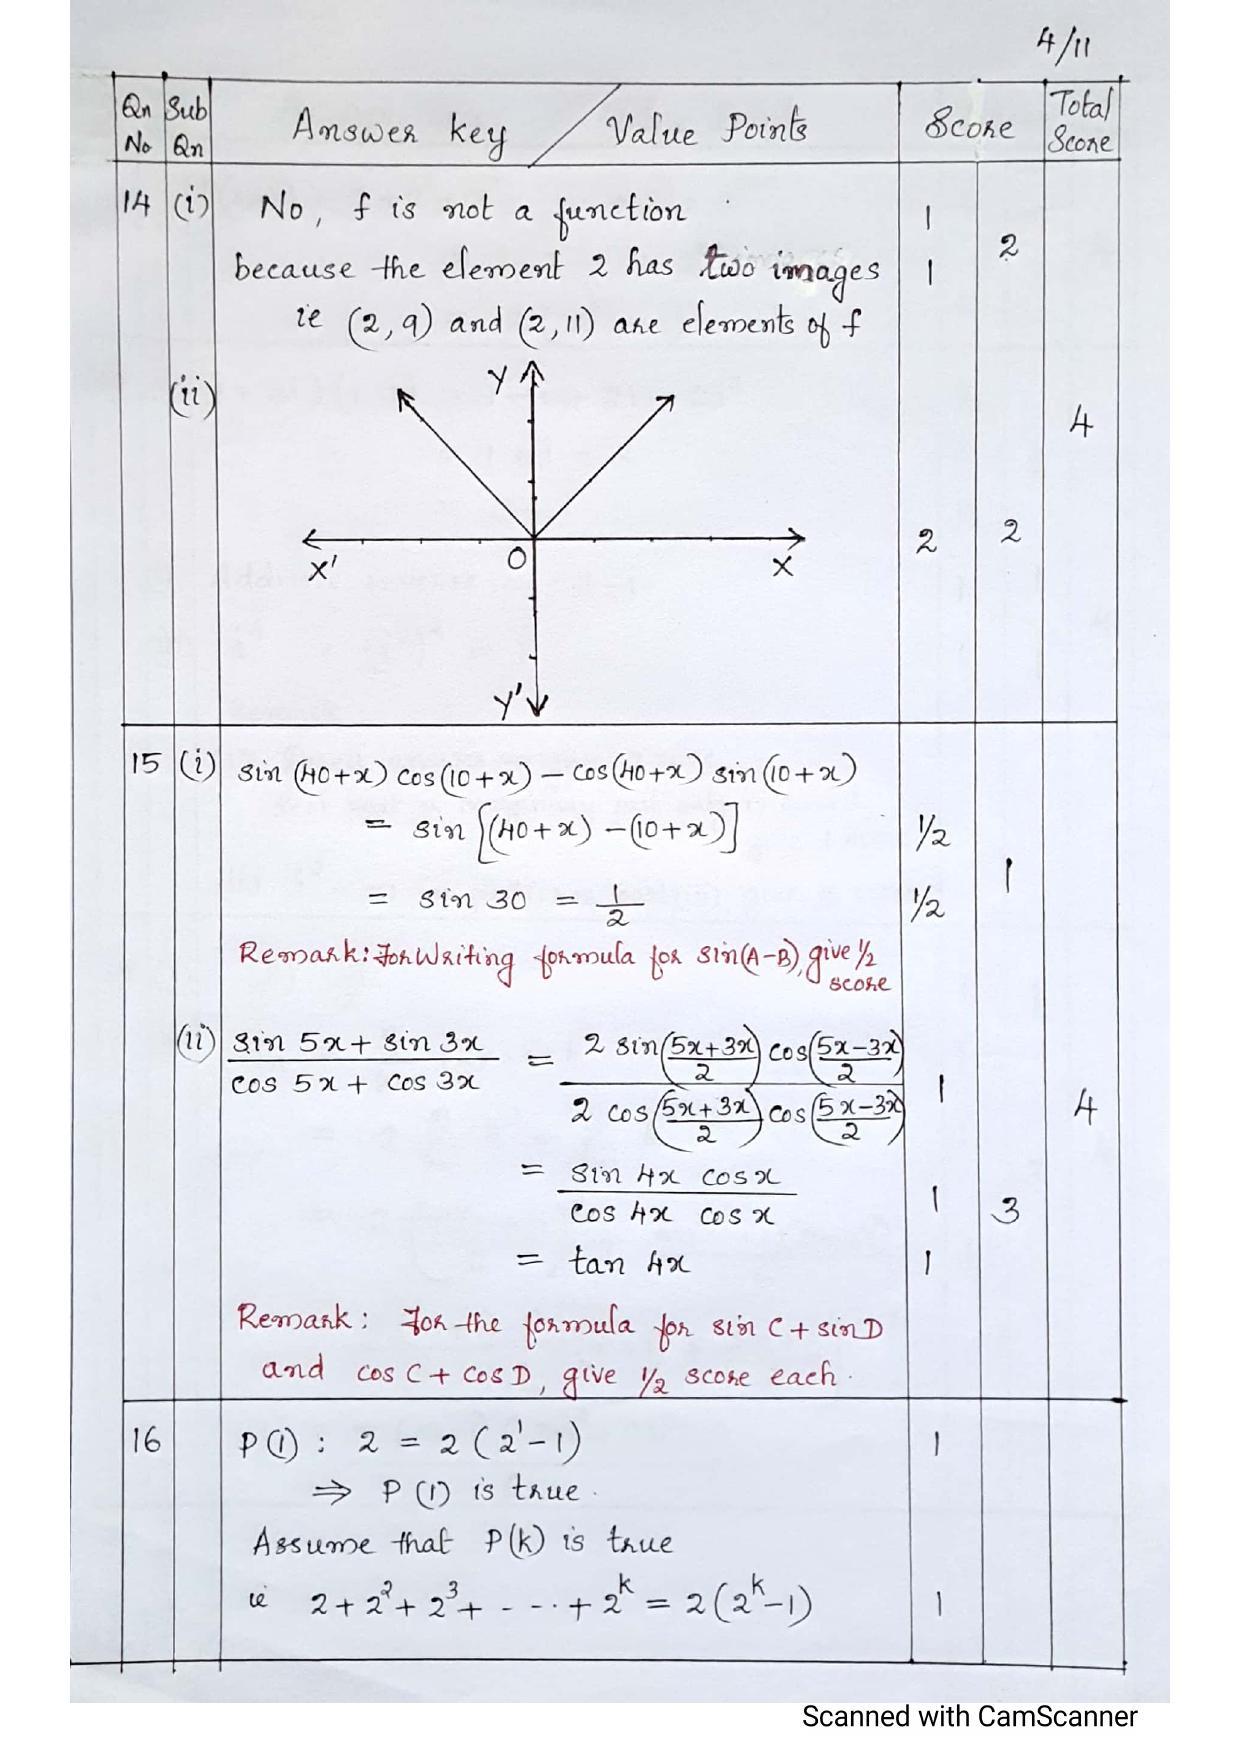 4/11
Qn No | Sub Qn | Answer key / Value Points | Score | Total Score
14 (i) No, f is not a function 1
because the element 2 has two images 1 2
ie (2, 9) and (2, 11) are elements of f
(ii) Y
4
X' O X 2 2
Y'
15 (i) sin (40+x) cos(10+x) – cos(40+x) sin(10+x)
= sin [(40+x) – (10+x)] 1/2
1
= sin 30 = 1/2 1/2
Remark: For Writing formula for sin(A–B), give 1/2
score
(ii) sin 5x + sin 3x / cos 5x + cos 3x = 2 sin(5x+3x/2) cos(5x–3x/2) / 2 cos(5x+3x/2) cos(5x–3x/2) 1 4
= sin 4x cos x / cos 4x cos x 1 3
= tan 4x 1
Remark: For the formula for sin C + sin D
and cos C + cos D, give 1/2 score each.
16 P(1) : 2 = 2(2¹–1) 1
⇒ P(1) is true.
Assume that P(k) is true
ie 2 + 2² + 2³ + - - .. + 2ᵏ = 2(2ᵏ–1) 1
Scanned with CamScanner